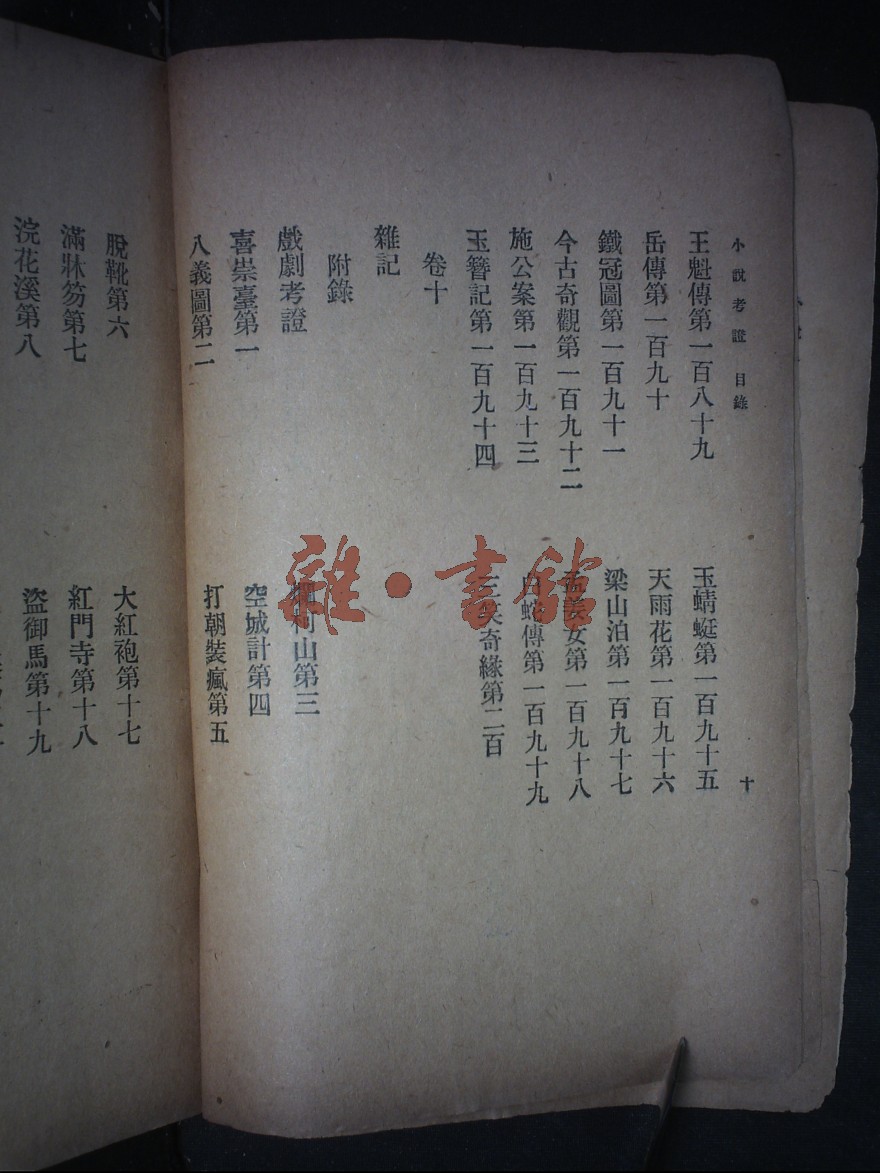 小說考證 目錄
十
王魁傳第一百八十九
岳傳第一百九十
鐵冠圖第一百九十一
今古奇觀第一百九十二
施公案第一百九十三
玉簪記第一百九十四
玉蜻蜓第一百九十五
天雨花第一百九十六
梁山泊第一百九十七
孟姜女第一百九十八
白蛇傳第一百九十九
三笑奇緣第二百
卷十
雜記
附錄
戲劇考證
喜崇臺第一
八義圖第二
山第三
空城計第四
打朝裝瘋第五
脫靴第六
滿牀笏第七
浣花溪第八
大紅袍第十七
紅門寺第十八
盜御馬第十九
雜·書館